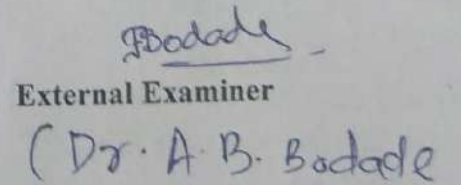 ABodade
External Examiner
(Dr. A. B. Bodade